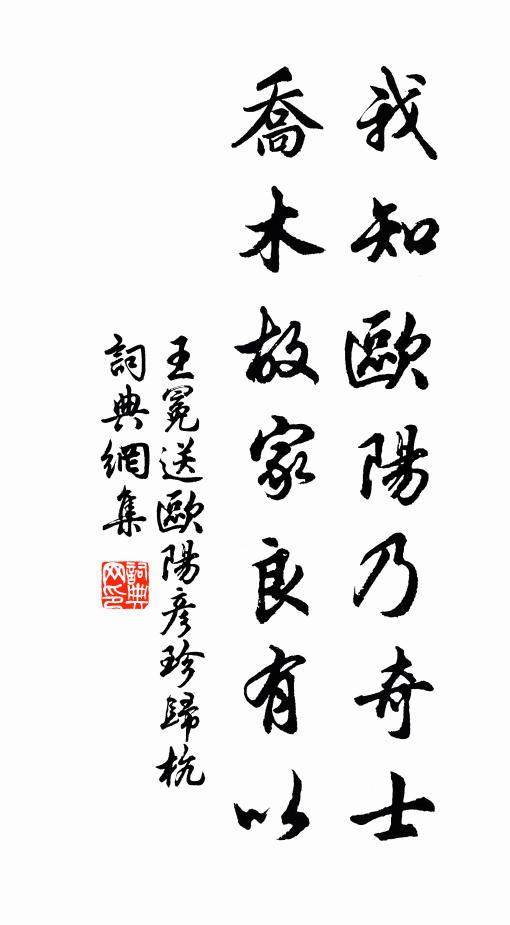 我知歐陽乃奇士
喬木故家良有以
王冕送歐陽彥珍歸杭
詞典網集
詞典網印